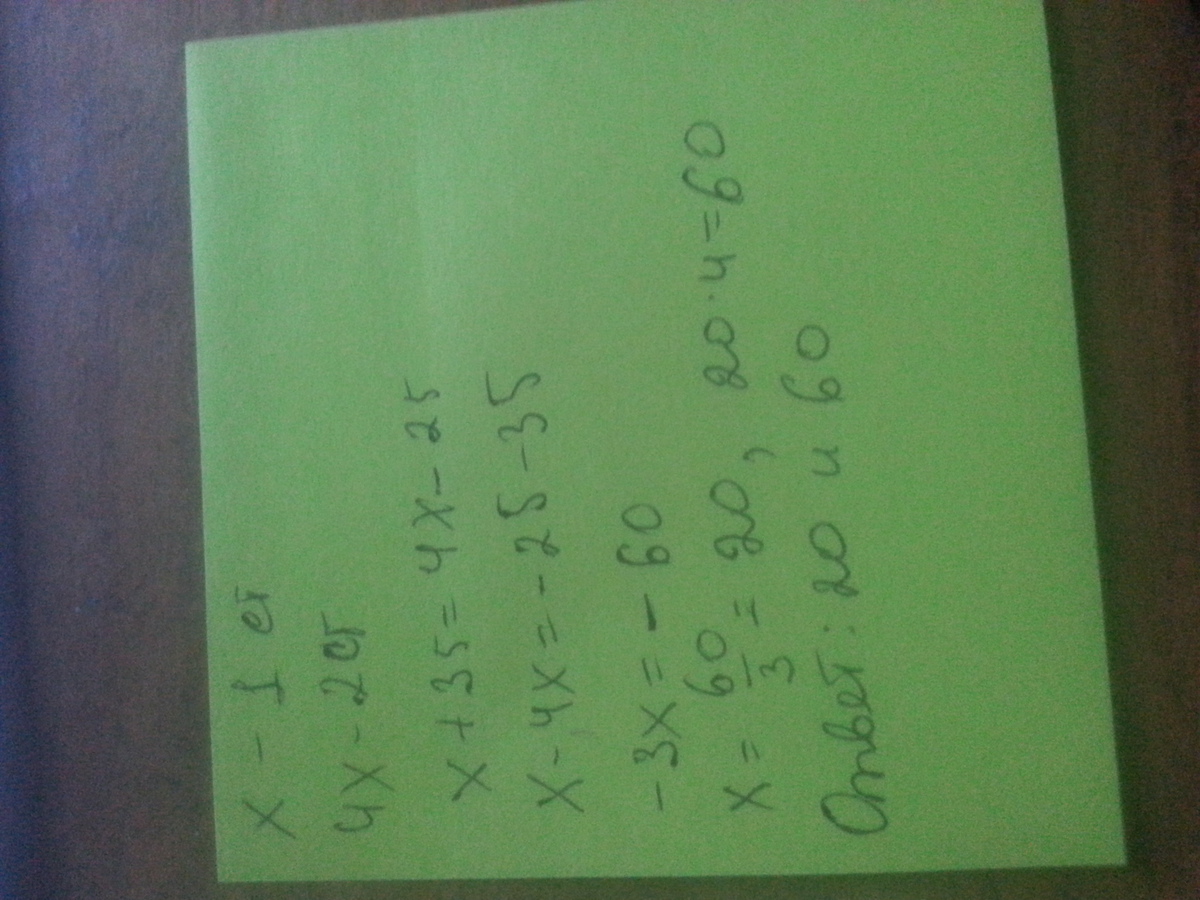 x - 1 ст
4x - 2 ст
x + 35 = 4x - 25
x - 4x = - 25 - 35
- 3x = - 60
x = 60/3 = 20, 20 · 4 = 60
Ответ: 20 и 60